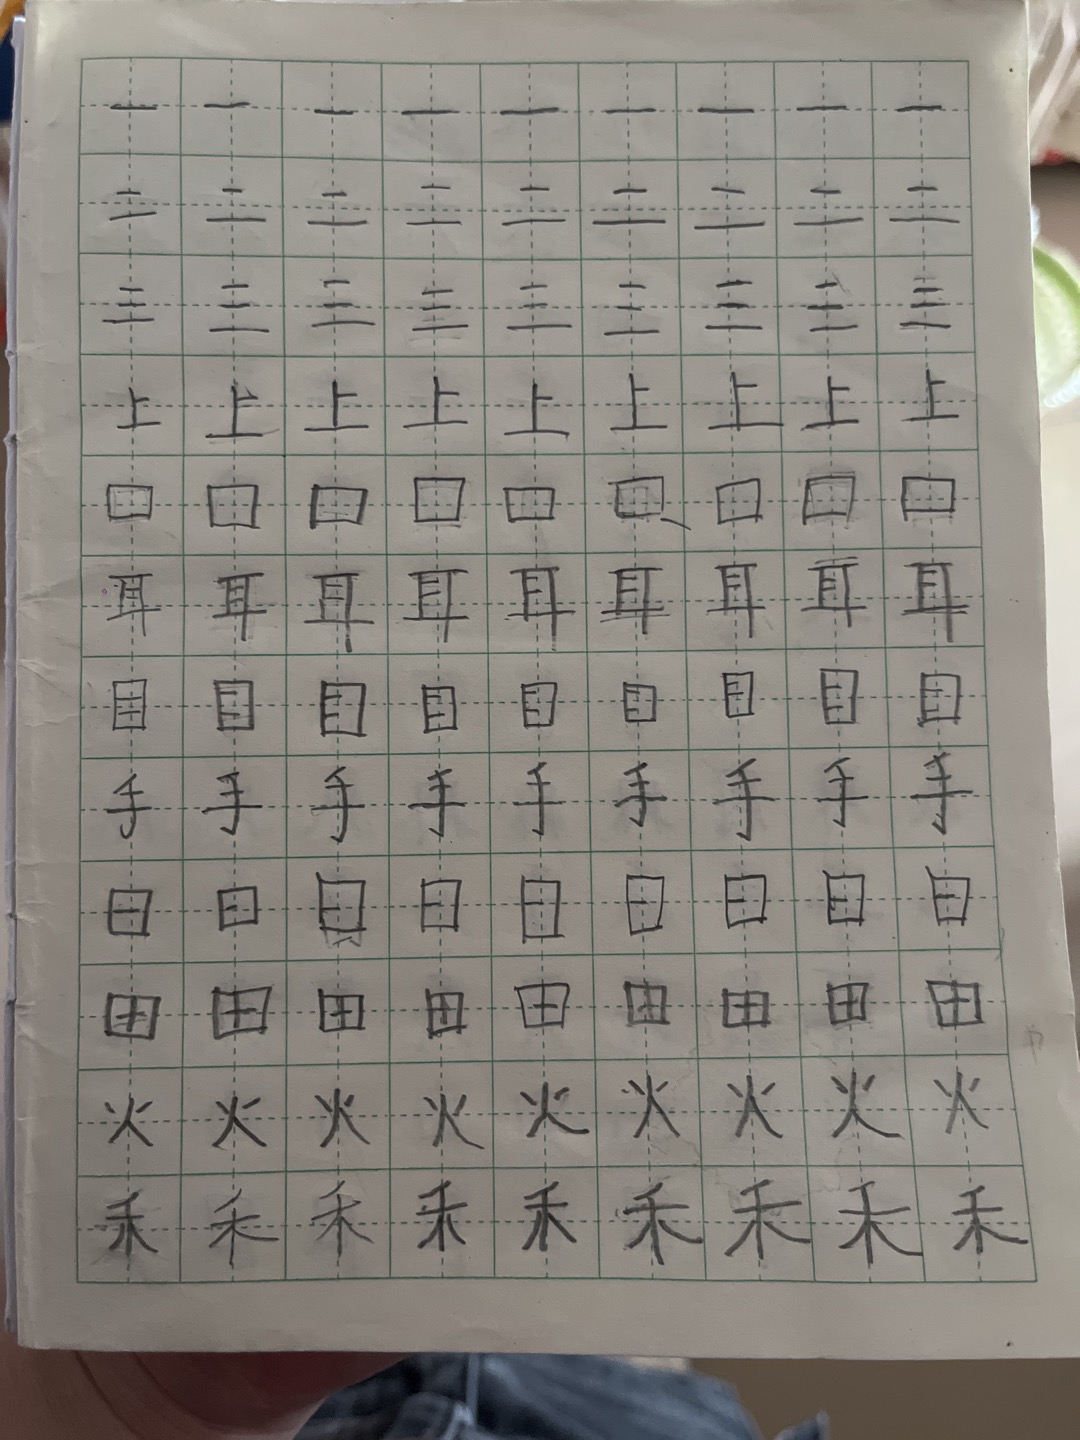 一 一 一 一 一 一 一 一 一
二 二 二 二 二 二 二 二 二
三 三 三 三 三 三 三 三 三
上 上 上 上 上 上 上 上 上
口 口 口 口 口 口 口 口 口
耳 耳 耳 耳 耳 耳 耳 耳 耳
目 目 目 目 目 目 目 目 目
手 手 手 手 手 手 手 手 手
日 日 日 日 日 日 日 日 日
田 田 田 田 田 田 田 田 田
火 火 火 火 火 火 火 火 火
禾 禾 禾 禾 禾 禾 禾 禾 禾